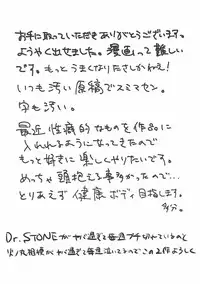 お手に取っていただきありがとうございます。
ようやく出せました。漫画って難しい
です。もっとうまくなりたさしかねえ!
いつも汚い原稿でスミマセン。
字も汚い。
最近性癖的なものを作品に
入れれるようになってきたので
もっと好きに楽しくやりたいです。
めっちゃ頭抱える事多かったので…
とりあえず健康ボディ目指します。
多分。
Dr.STONEがヤバ過ぎて毎週ブチ切れているのと
火ノ丸相撲がヤバ過ぎて毎週泣いてるのでこの2作よろしく